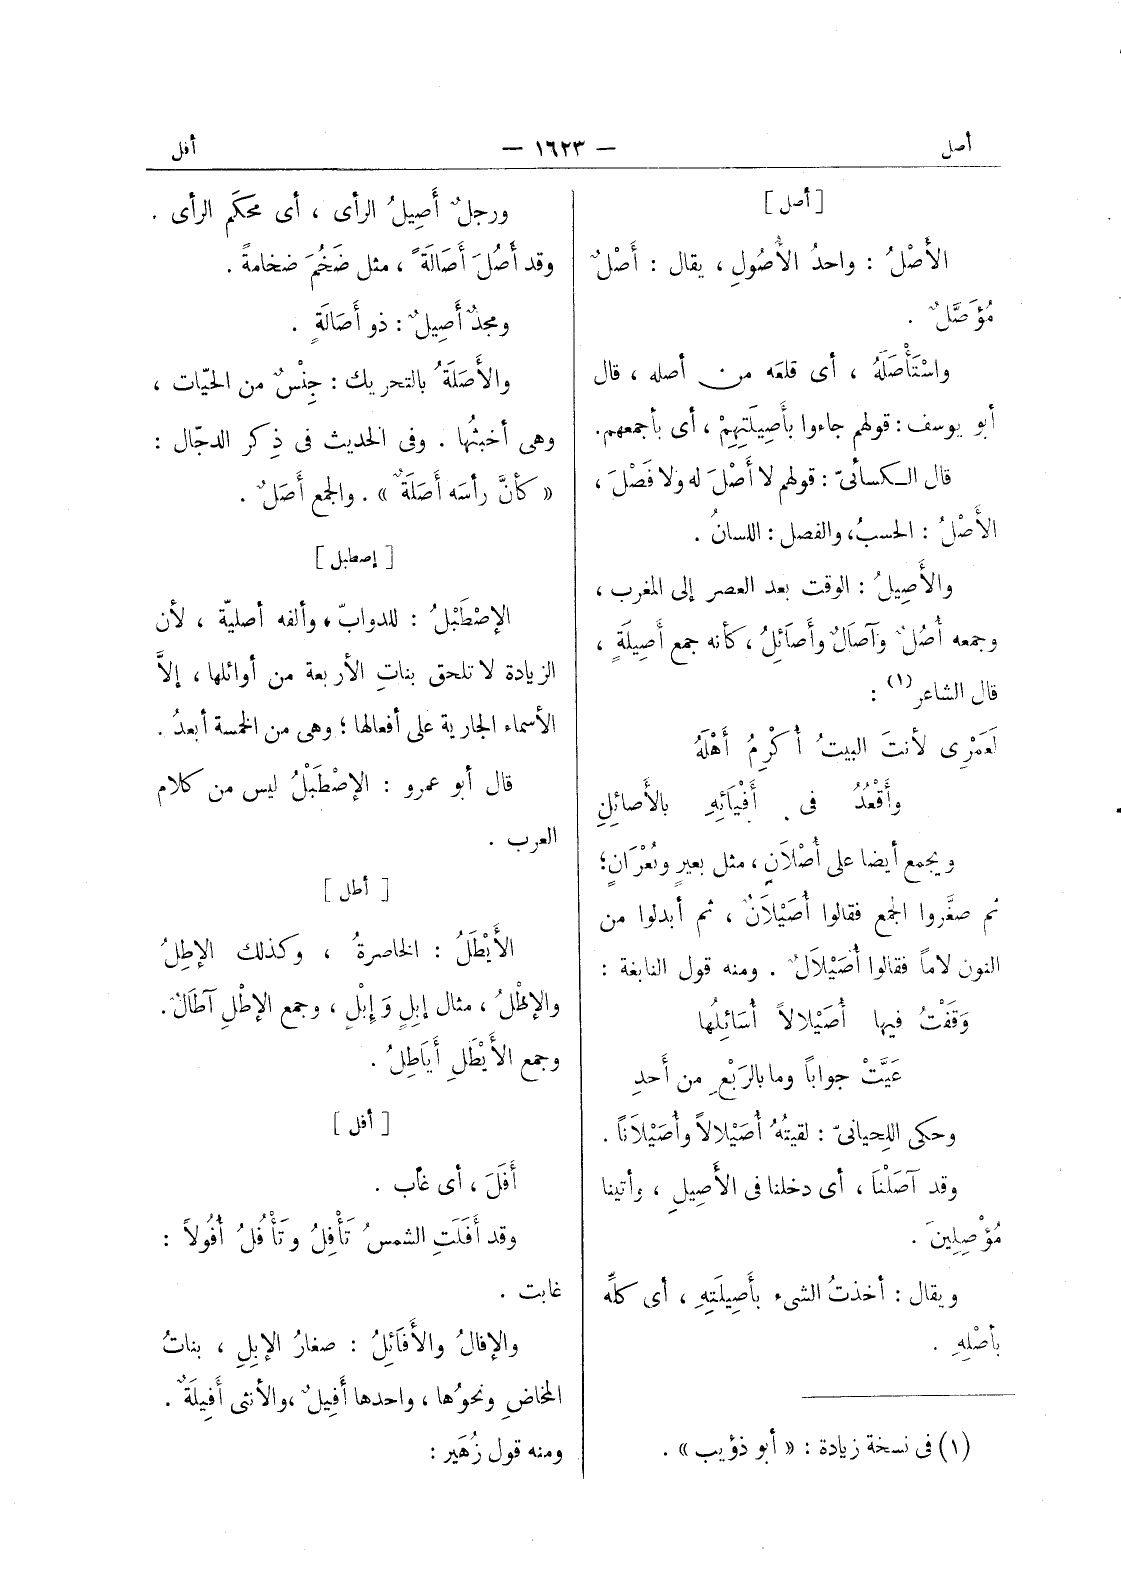 أصل — ١٦٢٣ — أفل
[ أصل ]
الأَصْلُ : واحدُ الأُصُولِ ، يقال : أَصْلٌ
مُؤَصَّلٌ .
واسْتَأْصَلَهُ ، أى قلعَه من أصله ، قال
أبو يوسف : قولهم جاءوا بأَصِيلَتِهِمْ ، أى بأجمعهم.
قال الكسائىّ : قولهم لا أَصْلَ له ولا فَصْلَ ،
الأَصْلُ : الحسبُ، والفصل : اللسانُ .
والأَصِيلُ : الوقت بعد العصر إلى المغرب ،
وجمعه أُصُلٌ وآصَالٌ وأَصَائِلُ ، كأنه جمع أَصِيلَةٍ ،
قال الشاعر(١) :
لَعَمْرِى لأنتَ البيتُ أُكْرِمُ أَهْلَهُ
وأَقْعُدُ فى أَفْيَائِهِ بالأَصائِلِ
ويجمع أيضا على أُصْلَانٍ ، مثل بعيرٍ وبُعْرَانٍ؛
ثم صغَّروا الجمع فقالوا أُصَيْلَانٌ ، ثم أبدلوا من
النون لاماً فقالوا أُصَيْلَالٌ . ومنه قول النابغة :
وَقَفْتُ فيها أُصَيْلالاً أُسَائِلُها
عَيَّتْ جواباً وما بالرَبْعِ من أَحدِ
وحكى اللِحيانىّ : لقيتُهُ أُصَيْلالاً وأُصَيْلَاناً .
وقد آصَلْنَا ، أى دخلنا فى الأَصِيلِ ، وأتينا
مُؤْصِلِينَ .
ويقال : أخذتُ الشىء بأَصِيلَتِهِ ، أى كلِّه
بأَصْلِهِ .
(١) فى نسخة زيادة : « أبو ذؤيب » .
ورجلٌ أَصِيلُ الرأى ، أى محكَم الرأى .
وقد أَصُلَ أَصَالَةً ، مثل ضَخُمَ ضخامةً .
ومجدٌ أَصِيلٌ : ذو أَصَالَةٍ .
والأَصَلَةُ بالتحريك : جِنْسٌ من الحيّات ،
وهى أخبثُها . وفى الحديث فى ذِكر الدجّال :
« كأنَّ رأسَه أَصَلَةٌ » . والجمع أَصَلٌ .
[ إصطبل ]
الإصْطَبْلُ : للدوابّ ، وألفه أصليّة ، لأن
الزيادة لا تلحق بناتِ الأربعة من أوائلها ، إلاَّ
الأسماء الجارية على أفعالها ؛ وهى من الخمسة أبعدُ .
قال أبو عمرو : الإصْطَبْلُ ليس من كلام
العرب .
[ أطل ]
الأَيْطَلُ : الخاصرةُ ، وكذلك الإطِلُ
والإطْلُ ، مثال إبِلٍ وَإبْلٍ ، وجمع الإطْلِ آطَالٌ .
وجمع الأَيْطَلِ أَيَاطِلُ .
[ أفل ]
أَفَلَ ، أى غاب .
وقد أَفَلَتِ الشمسُ تَأْفِلُ وتَأْفُلُ أُفُولاً :
غابت .
والإفالُ والأَفَائِلُ : صغارُ الإبِلِ ، بناتُ
المخاضِ ونحوُها ، واحدها أَفِيلٌ ،والأنثى أَفِيلَةٌ .
ومنه قول زُهَير :